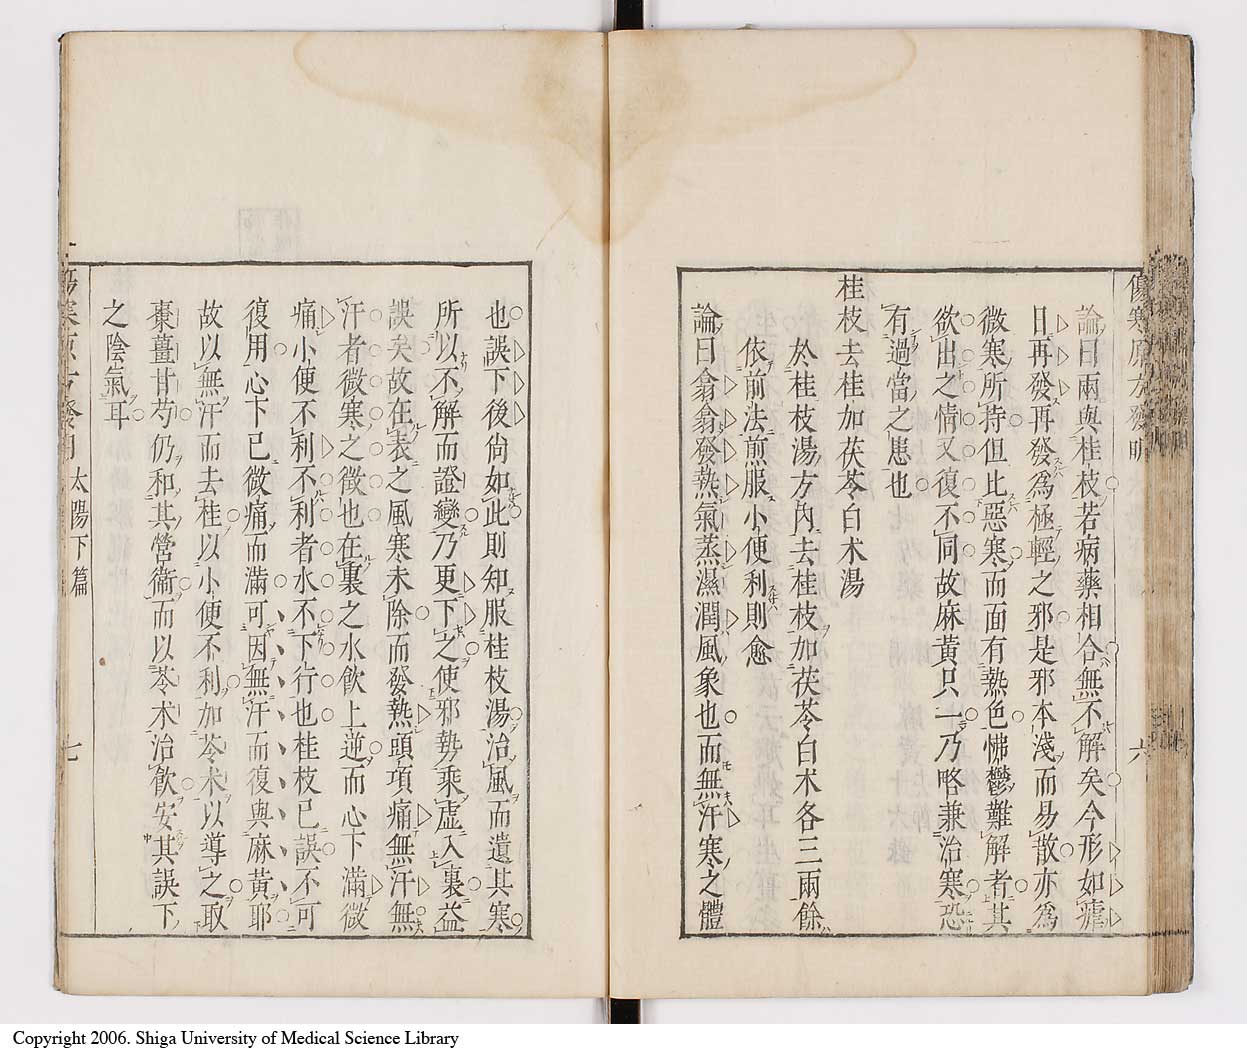 傷寒原方發明 六
論曰兩與桂枝若病藥相合無不解矣今形如瘧
日再發再發爲極輕之邪是邪本淺而易散亦爲
微寒所持但比惡寒而面有熱色怫鬱難解者其
欲出之情又復不同故麻黃只一乃略兼治寒恐
有過當之患也
桂枝去桂加茯苓白朮湯
於桂枝湯方內去桂枝加茯苓白朮各三兩餘
依前法煎服小便利則愈
論曰翕翕發熱氣蒸濕潤風象也而無汗寒之體
也誤下後尙如此則知服桂枝湯治風而遺其寒
所以不解而證變乃更下之使邪勢乘虛入裏益
誤矣故在表之風寒未除而發熱頭項痛無汗無
汗者微寒之微也在裏之水飮上逆而心下滿微
痛小便不利不利者水不下行也桂枝已誤不可
復用心下已微痛而滿可因無汗而復與麻黃耶
故以無汗而去桂以小便不利加苓朮以導之取
棗薑甘芍仍和其營衞而以苓朮治飮安其誤下
之陰氣耳
太陽下篇 七
Copyright 2006. Shiga University of Medical Science Library